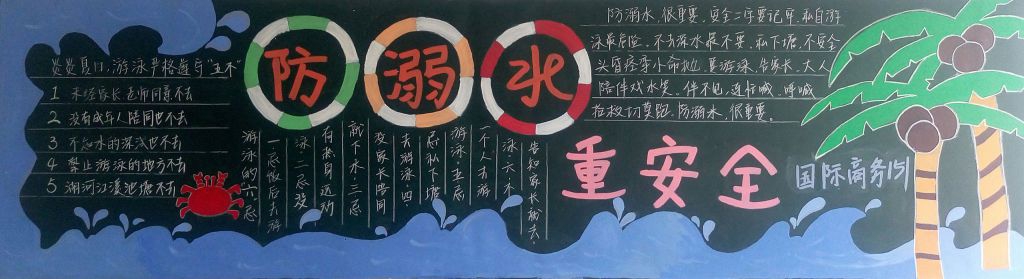 炎炎夏日，游泳严格遵守"五不"
1 未经家长、老师同意不去
2 没有成年人陪同也不去
3 不忘水的深浅也不去
4 禁止游泳的地方不去
5 湖河江溪池塘不去
防溺水
游泳的六忌
一忌饭后去游
泳·二忌投
有剧烈运动
就下水·三忌
没家长陪同
去游泳·四
忌私下塘
游泳·五忌
一个人去游
泳·六不
告知家长就去·
防溺水，很重要，安全二字要记牢，私自游
泳最危险，不去深水最不要，私下塘，不安全
头有疼事小命抛，要游泳，告家长，大人
陪伴戏水笑，伴不见，连忙喊，呼喊
抢救切莫跑，防溺水，很重要。
重安全
国际商务151